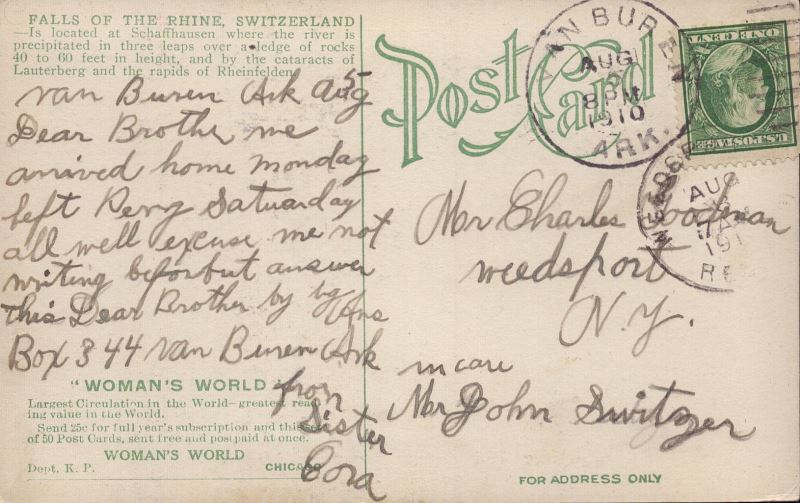 FALLS OF THE RHINE, SWITZERLAND
—Is located at Schaffhausen where the river is
precipitated in three leaps over a ledge of rocks
40 to 60 feet in height, and by the cataracts of
Lauterberg and the rapids of Rheinfelden.
Van Buren Ark Aug 5
Dear Brother we
arrived home monday
left Perry Satuarday
all well excuse me not
writing befor but answer
this Dear Brother by by
Box 344 Van Buren Ark
from
Sister
Cora
"WOMAN'S WORLD"
Largest Circulation in the World—greatest read-
ing value in the World.
Send 25c for full year's subscription and this set
of 50 Post Cards, sent free and postpaid at once.
WOMAN'S WORLD
Dept. K. P. CHICAGO
Post Card
VAN BUREN
AUG
5
8 PM
1910
ARK.
U.S. POSTAGE
ONE CENT
WEEDSPORT
AUG
7 AM
191
REC
Mr Charles Goodman
weedsport
N.Y.
in care
Mr John Switzer
FOR ADDRESS ONLY